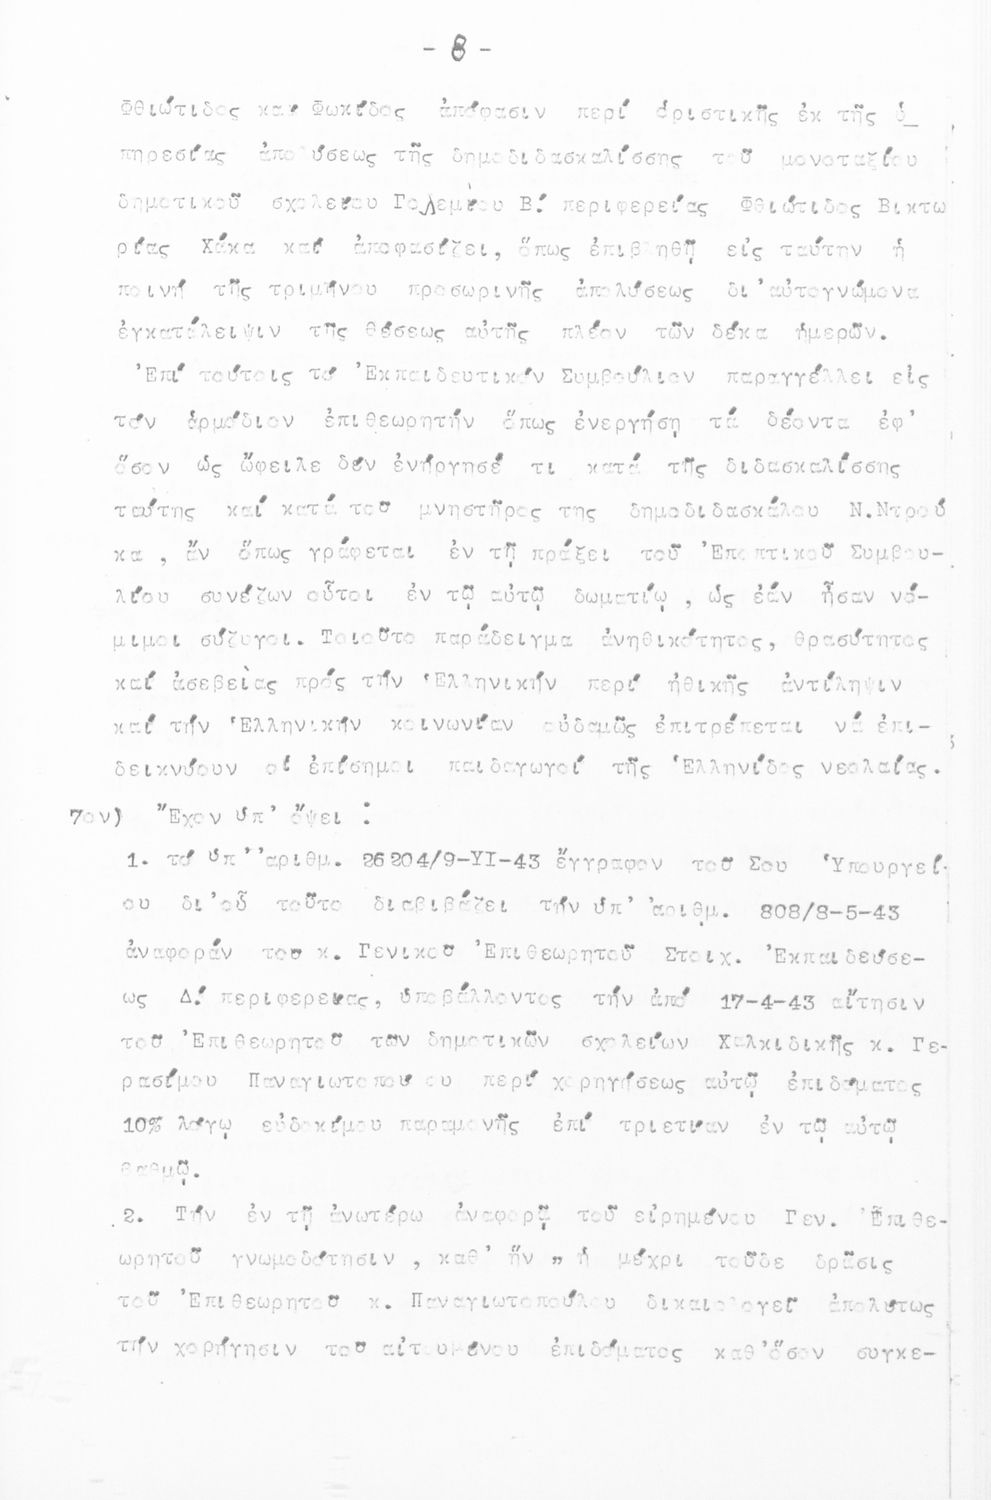 - 8 -
Φθιώτιδος καί Φωκίδος ἀπόφασιν περί ὁριστικῆς ἐκ τῆς ὑ_
πηρεσίας ἀπολύσεως τῆς δημοδιδασκαλίσσης τοῦ μονοταξίου
δημοτικοῦ σχολείου Γολεμίου Β΄ περιφερείας Φθιώτιδος Βικτω
ρίας Χάκα καί ἀποφασίζει, ὅπως ἐπιβληθῇ εἰς ταύτην ἡ
ποινή τῆς τριμήνου προσωρινῆς ἀπολύσεως δι'αὐτογνώμονα
ἐγκατάλειψιν τῆς θέσεως αὐτῆς πλέον τῶν δέκα ἡμερῶν.
'Επί τούτοις τό 'Εκπαιδευτικόν Συμβούλιον παραγγέλλει εἰς
τόν ἁρμόδιον ἐπιθεωρητήν ὅπως ἐνεργήσῃ τά δέοντα ἐφ'
ὅσον ὡς ὤφειλε δέν ἐνήργησέ τι κατά τῆς διδασκαλίσσης
ταύτης καί κατά τοῦ μνηστῆρος της δημοδιδασκάλου Ν.Ντρού
κα , ἄν ὅπως γράφεται ἐν τῇ πράξει τοῦ 'Εποπτικοῦ Συμβου-
λίου συνέζων οὗτοι ἐν τῷ αὐτῷ δωματίῳ , ὡς ἐάν ἦσαν νό-
μιμοι σύζυγοι. Τοιοῦτο παράδειγμα ἀνηθικότητος, θρασύτητος
καί ἀσεβείας πρός τήν 'Ελληνικήν περί ἠθικῆς ἀντίληψιν
καί τήν 'Ελληνικήν κοινωνίαν οὐδαμῶς ἐπιτρέπεται νά ἐπι-
δεικνύουν οἱ ἐπίσημοι παιδαγωγοί τῆς 'Ελληνίδος νεολαίας.
7ον) "Εχον ὑπ' ὄψει :
1. τό ὑπ''αριθμ. 26204/9-ΥΙ-43 ἔγγραφον τοῦ Σου 'Υπουργεί-
ου δι'οὗ τοῦτο διαβιβάζει τήν ὑπ' 'αριθμ. 808/8-5-43
ἀναφοράν του κ. Γενικοῦ 'Επιθεωρητοῦ Στοιχ. 'Εκπαιδεύσε-
ως Δ΄ περιφερείας, ὑποβάλλοντος τήν ἀπό 17-4-43 αἴτησιν
τοῦ 'Επιθεωρητοῦ τῶν δημοτικῶν σχολείων Χαλκιδικῆς κ. Γε-
ρασίμου Παναγιωτοπούλου περί χορηγήσεως αὐτῷ ἐπιδόματος
10% λόγῳ εὐδοκίμου παραμονῆς ἐπί τριετίαν ἐν τῷ αὐτῷ
βαθμῷ.
2. Τήν ἐν τῇ ἀνωτέρω ἀναφορᾷ τοῦ εἰρημένου Γεν. 'Επιθε-
ωρητοῦ γνωμοδότησιν , καθ' ἥν „ ἡ μέχρι τοῦδε δρᾶσις
τοῦ 'Επιθεωρητοῦ κ. Παναγιωτοπούλου δικαιολογεῖ ἀπολύτως
τήν χορήγησιν τοῦ αἰτουμένου ἐπιδόματος καθ'ὅσον συγκε-